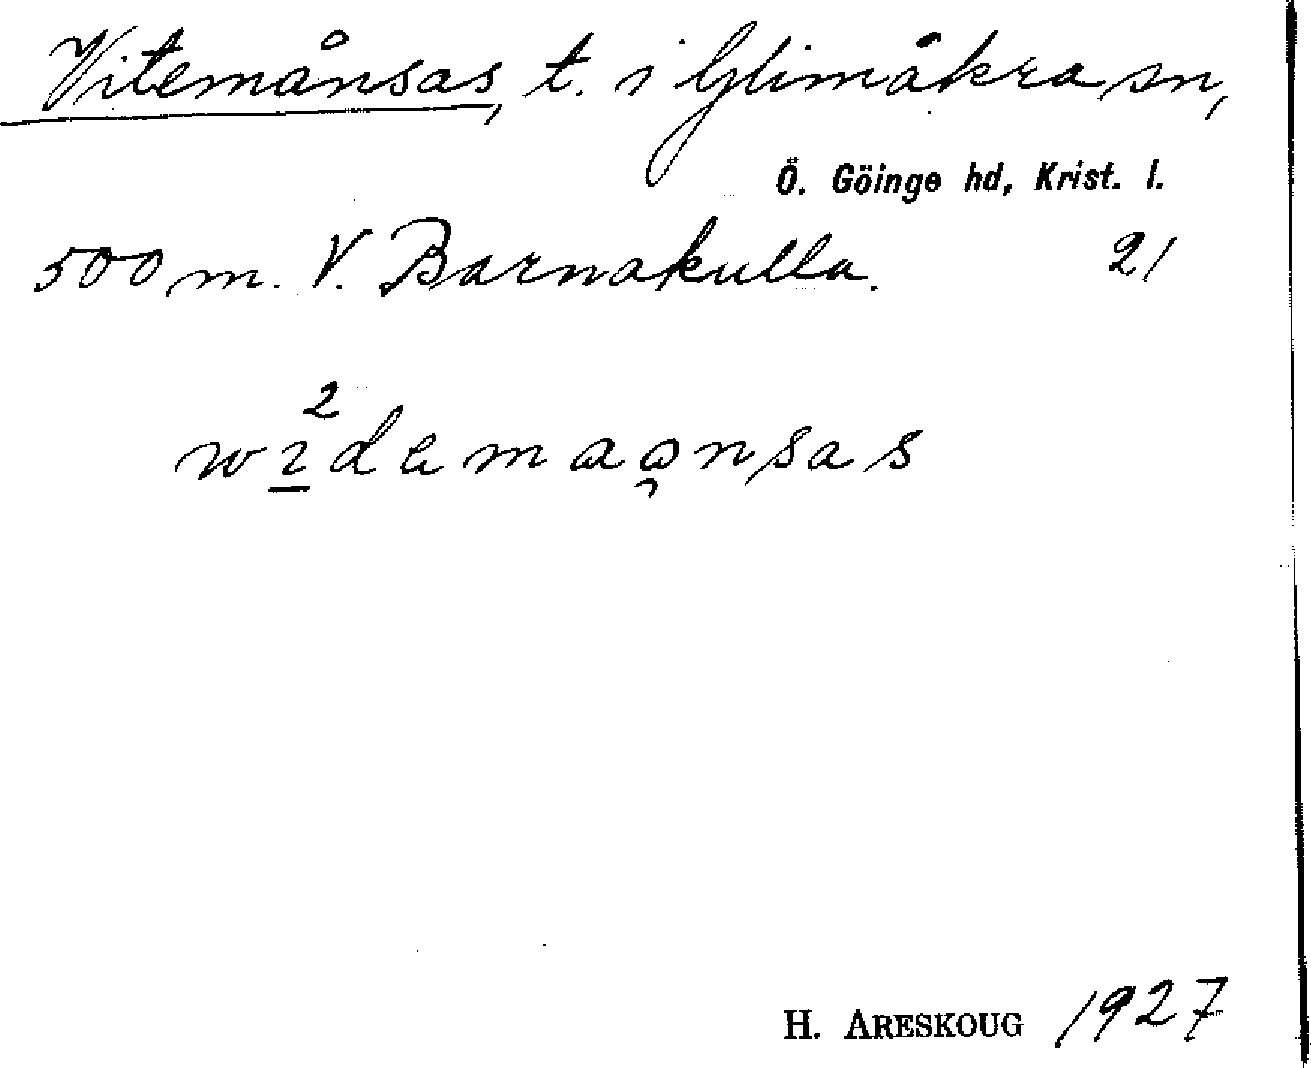 Vitemånsas, t. i Glimåkra sn,
Ö. Göinge hd, Krist. l.
500 m. V. Barnakulla. 21
2
1927
H. ARESKOUG